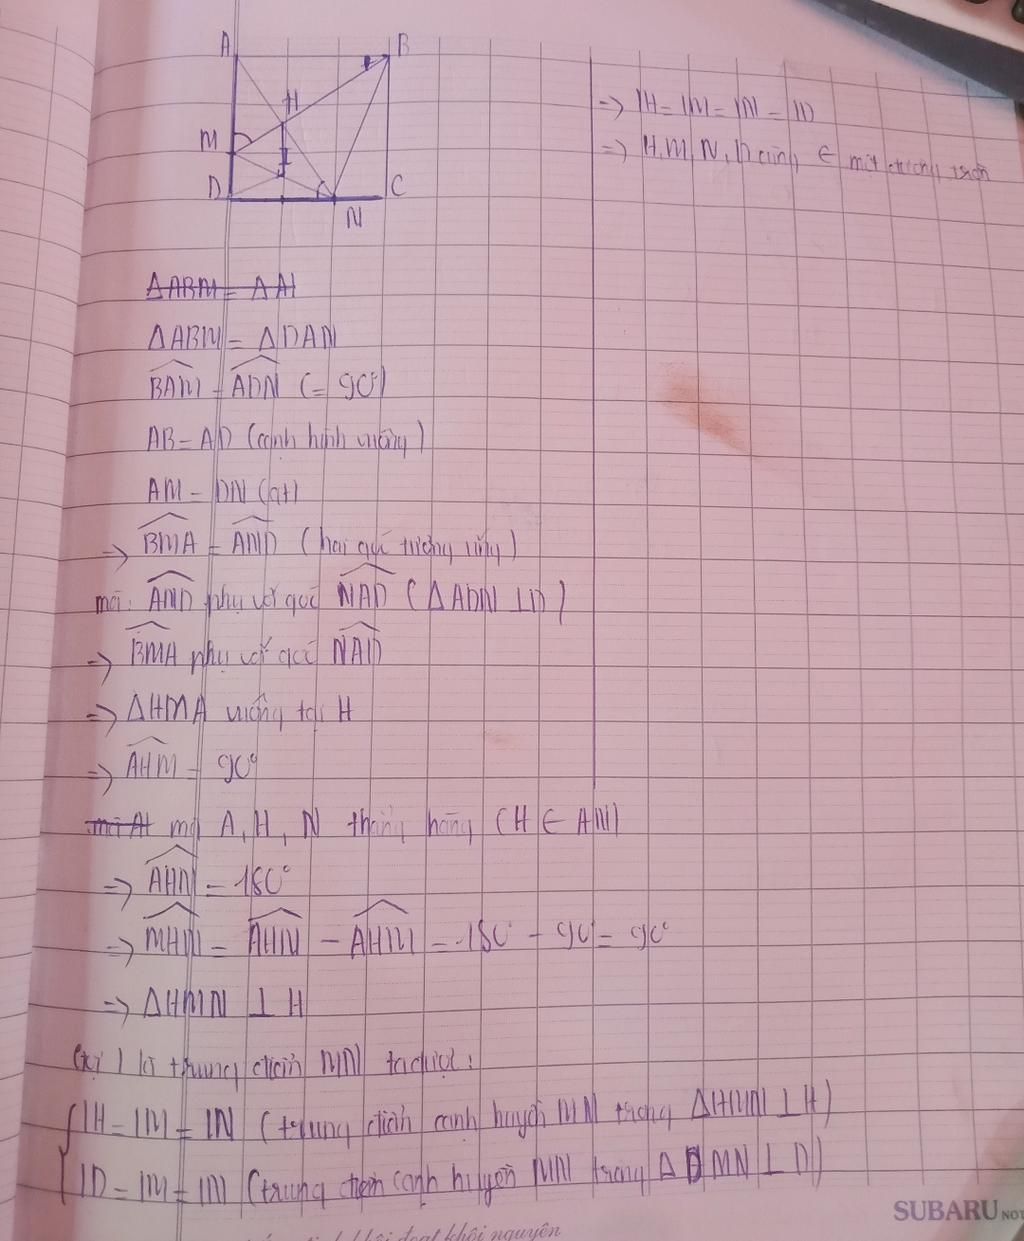 A
B
H
M
I
D
N
C
ΔABM = ΔAI
ΔABM = ΔDAN
BAM = ADN (= 90°)
AB = AD (cạnh hình vuông)
AM = DN (gt)
=> BMA = AND (hai góc tương ứng)
mà: AND phụ với góc NAD (ΔADN ⊥ D)
=> BMA phụ với góc NAD
=> ΔHMA vuông tại H
=> AHM = 90°
mà At mà A, H, N thẳng hàng (H ∈ AN)
=> AHN = 180°
=> MHN = AHN - AHM = 180° - 90° = 90°
=> ΔHMN ⊥ H
Gọi I là trung điểm MN ta được:
IH = IM = IN (trung điểm cạnh huyền MN trong ΔHMN ⊥ H)
ID = IM = IN (trung điểm cạnh huyền MN trong ΔDMN ⊥ D)
=> IH = IM = IN = ID
=> H, M, N, D cùng ∈ một đường tròn
SUBARU
khôi nguyên